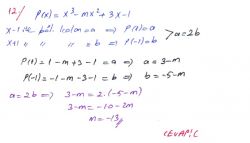 12/ P(x) = x³ - mx² + 3x - 1
x-1 ile böl. kalan = a ⇒ P(1) = a
x+1 " " " = b ⇒ P(-1) = b > a = 2b
P(1) = 1 - m + 3 - 1 = a ⇒ a = 3 - m
P(-1) = -1 - m - 3 - 1 = b ⇒ b = -5 - m
a = 2b ⇒ 3 - m = 2 . (-5 - m)
3 - m = -10 - 2m
m = -13
CEVAP: C